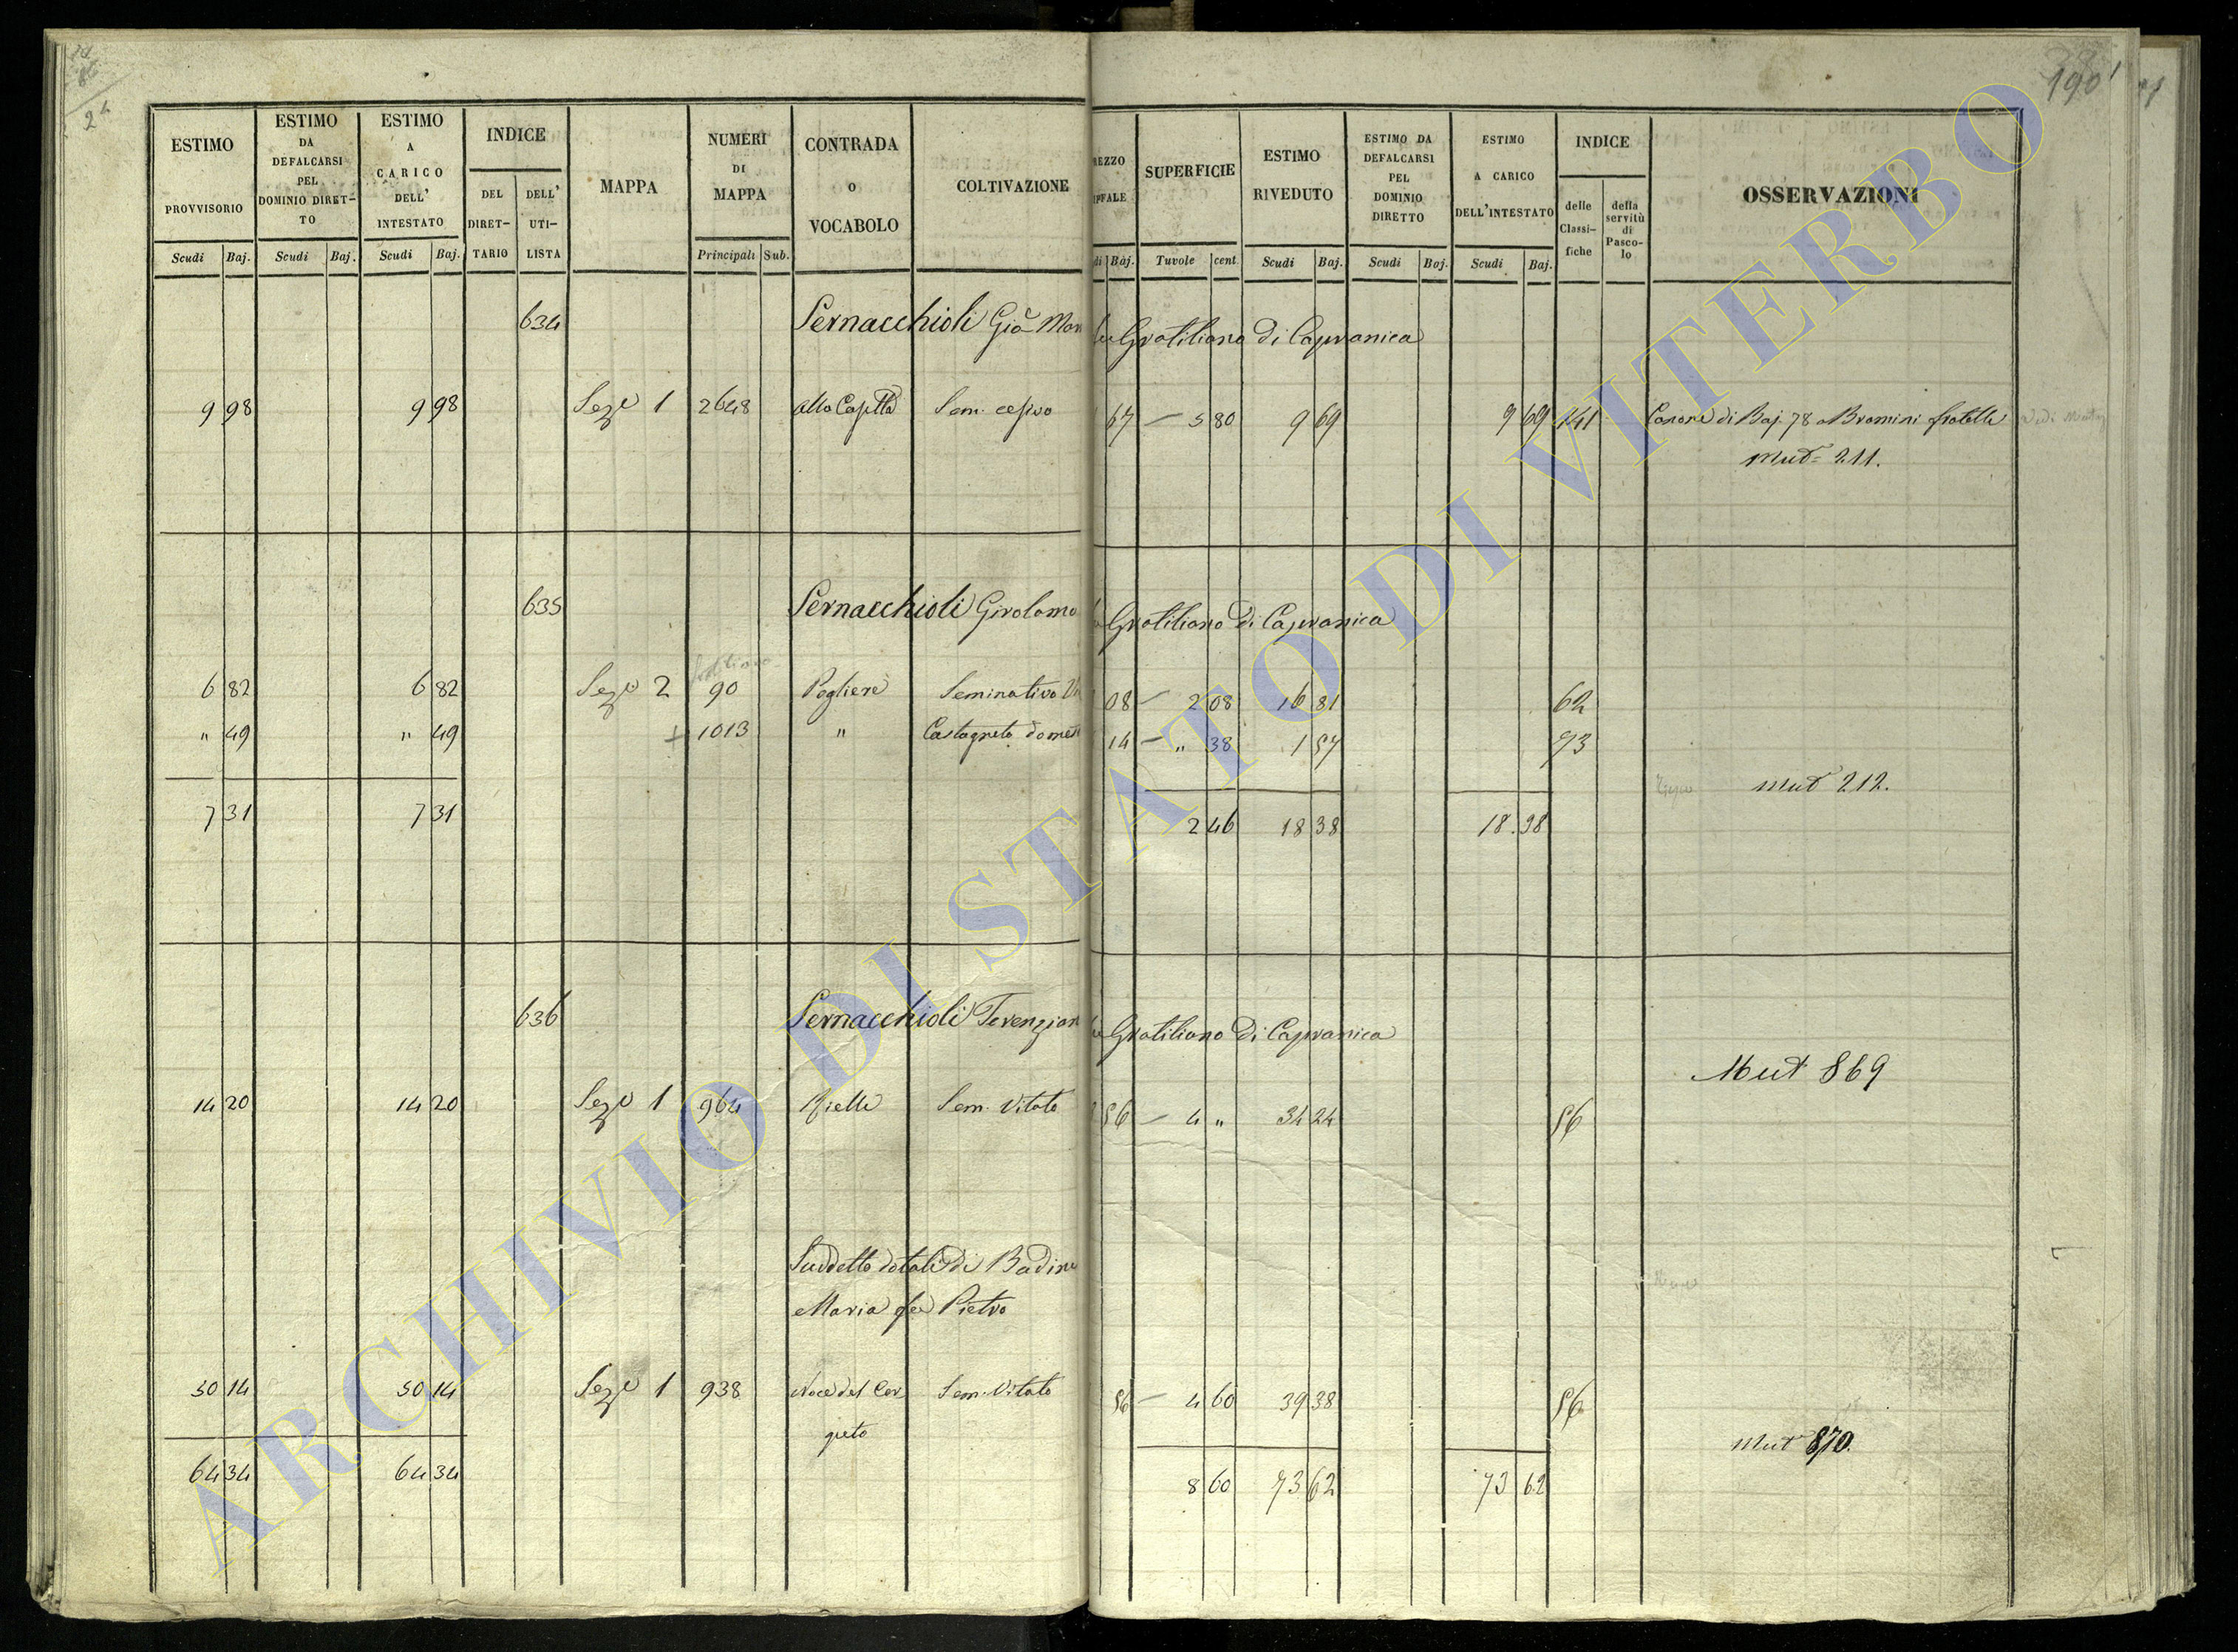 190
ESTIMO PROVVISORIO
ESTIMO DA DEFALCARSI PEL DOMINIO DIRET-TO
ESTIMO A CARICO DELL' INTESTATO
INDICE
DEL DIRET-TARIO
DELL' UTI-LISTA
MAPPA
NUMERI DI MAPPA
CONTRADA O VOCABOLO
COLTIVAZIONE
SUPERFICIE
ESTIMO RIVEDUTO
ESTIMO DA DEFALCARSI PEL DOMINIO DIRETTO
ESTIMO A CARICO DELL'INTESTATO
INDICE
delle Classi-fiche
della servitù di Pasco-lo
OSSERVAZIONI
Scudi Baj. Scudi Baj. Scudi Baj. Principali Sub. Baj. Tavole cent. Scudi Baj. Scudi Baj. Scudi Baj.
634 Sernacchioli Già Mar Gratiliano di Capranica
9 98 9 98 Seze 1 2648 Sem. 67 – 5 80 9 69 9 69 141 Canone di Baj. 78 a Bramini fratelli
Mut= 211.
635 Sernacchioli Girolamo Gratiliano di Capranica
6 82 6 82 Seze 2 90 Pogliere Seminativo 08 – 2 08 16 81 62
" 49 " 49 + 1013 " Castagneto domes 14 – " 38 1 57 73
Mut 212.
7 31 7 31 2 46 18 38 18.38
636 Sernacchioli Terenzian Gratiliano di Capranica
Mut 869
14 20 14 20 Seze 1 964 Sem. Vitato 56 – 4 " 34 24 56
Suddetto dotali di Badin
Maria fu Pietro
50 14 50 14 Seze 1 938 Noce del Cer- Sem. Vitato 56 – 4 60 39 38 56
queto
Mut 870.
64 34 64 34 8 60 73 62 73 62
ARCHIVIO DI STATO DI VITERBO